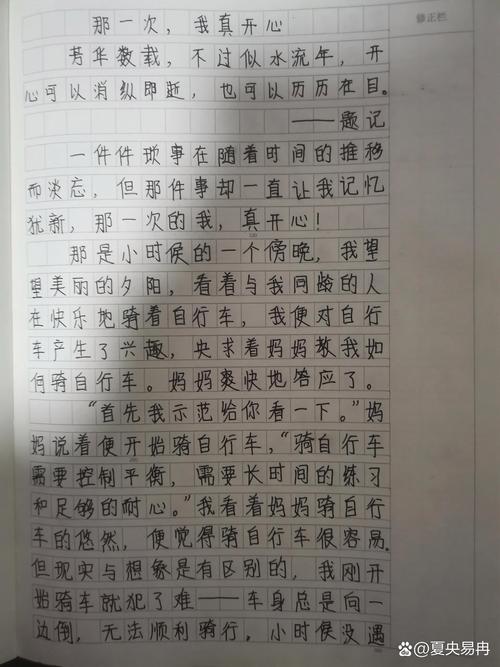 修正栏
那一次，我真开心
芳华数载，不过似水流年，开
心可以消纵即逝，也可以历历在目。
——题记
一件件琐事在随着时间的推移
而淡忘，但那件事却一直让我记忆
犹新，那一次的我，真开心！
那是小时候的一个傍晚，我望
望美丽的夕阳，看着与我同龄的人
在快乐地骑着自行车，我便对自行
车产生了兴趣，央求着妈妈教我如
何骑自行车。妈妈爽快地答应了。
“首先我示范给你看一下。”妈
妈说着便开始骑自行车，“骑自行车
需要控制平衡，需要长时间的练习
和足够的耐心。”我看着妈妈骑自行
车的悠然，便觉得骑自行车很容易。
但现实与想象是有区别的，我刚开
始骑车就犯了难——车身总是向一
边倒，无法顺利骑行，小时候没遇
@夏央易冉